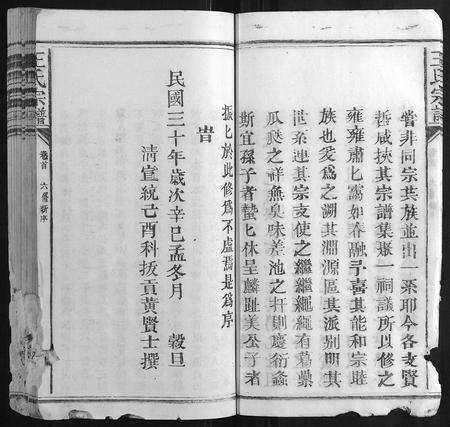 王氏宗譜
嘗非同宗共族並出一系耶今各支賢
哲咸挾其宗譜集於一祠議所以修之
雍雍肅匕靄如春融予喜其能和宗睦
族也爰為之溯其淵源區其派別明其
世系連其宗支使之繼繼繩繩有葛藟
瓜瓞之祥無臭味差池之
斯宜孫子者蟄匕休呈麟趾美公子者
振匕於此修為不虛焉是為序
旹
民國三十年歲次辛巳孟冬月 穀旦
清宣統己酉科拔貢黃賢士撰
王氏宗譜
卷首
六居新序